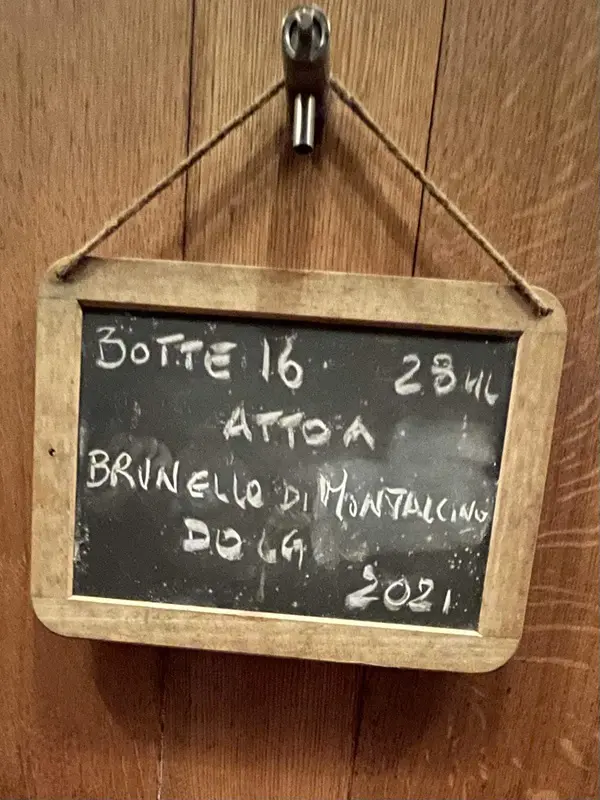 BOTTE 16 28 HL
ATTO A
BRUNELLO DI MONTALCINO
DOCG
2021